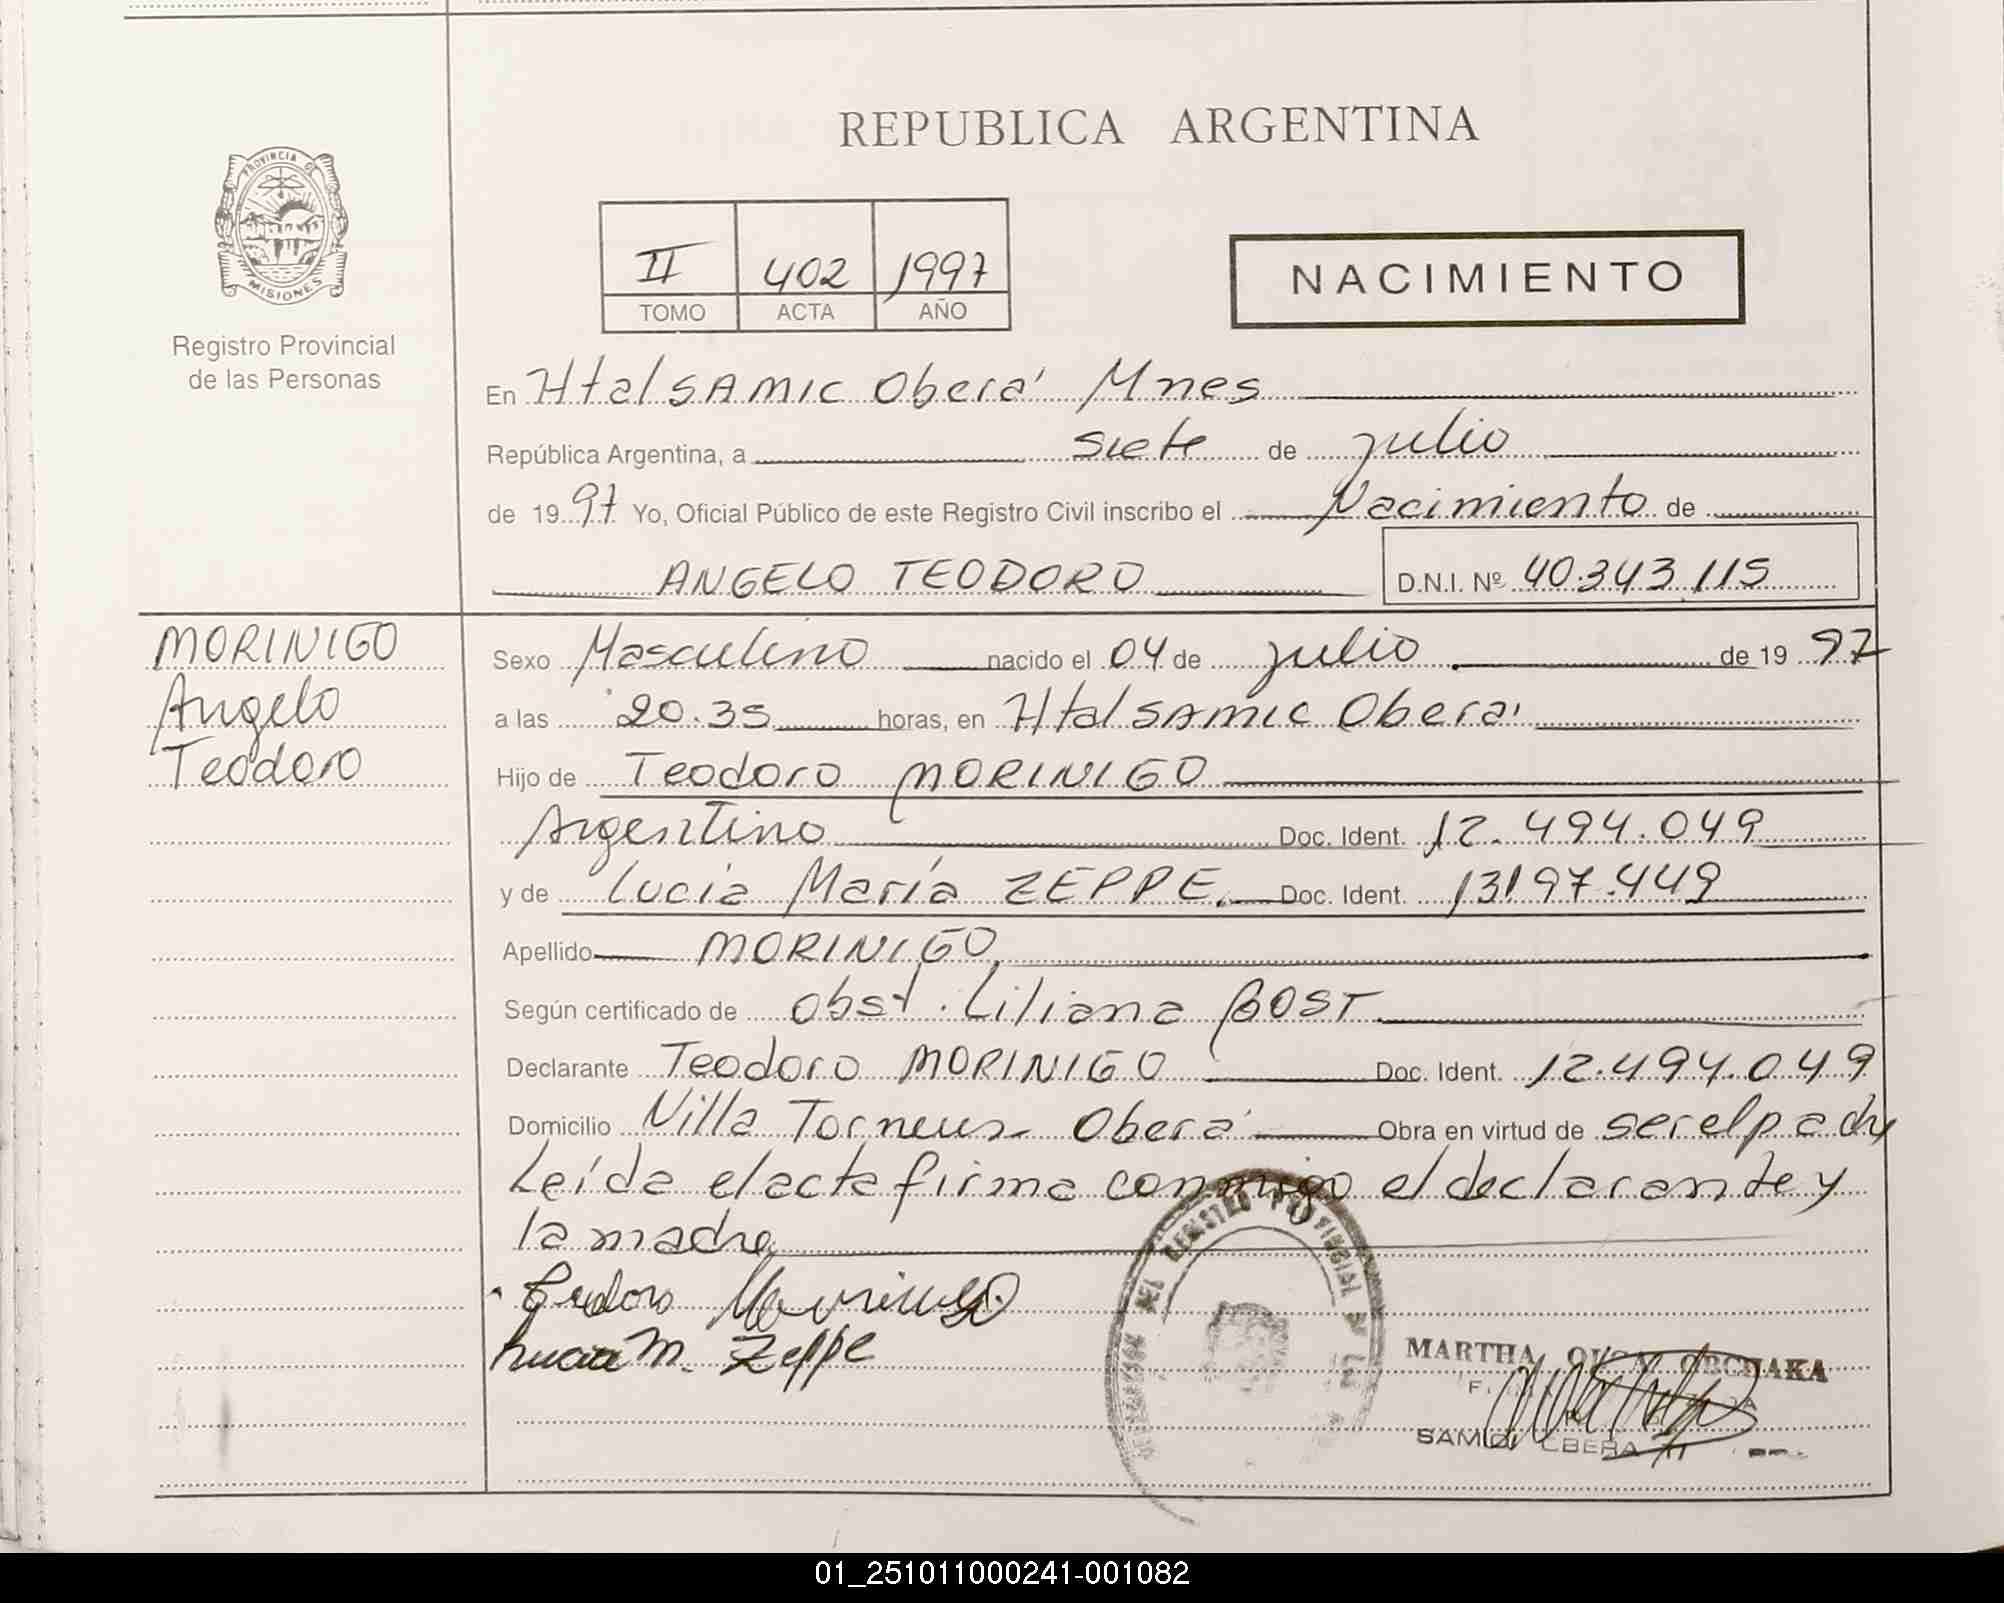 REPUBLICA ARGENTINA
PROVINCIA DE
MISIONES
Registro Provincial
de las Personas
II 402 1997
TOMO ACTA AÑO
NACIMIENTO
En Htal SAMIC Oberá Mnes
República Argentina, a siete de julio
de 1997 Yo, Oficial Público de este Registro Civil inscribo el Nacimiento de
ANGELO TEODORO D.N.I. Nº 40.343.115
MORINIGO
Angelo
Teodoro
Sexo Masculino nacido el 04 de julio de 1997
a las 20.35 horas, en Htal SAMIC Oberá
Hijo de Teodoro MORINIGO
Argentino Doc. Ident. 12.494.049
y de Lucia María ZEPPE. Doc. Ident. 13197.449
Apellido MORINIGO
Según certificado de Obst. Liliana BOST
Declarante Teodoro MORINIGO Doc. Ident. 12.494.049
Domicilio Villa Torneus Oberá Obra en virtud de ser el padre
Leída el acta firma conmigo el declarante y
la madre
Teodoro Morinigo
Lucia M. Zeppe
DEL REGISTRO PROVINCIAL DE LAS
MARTHA OBCHAKA
SAMIC OBERA
01_251011000241-001082